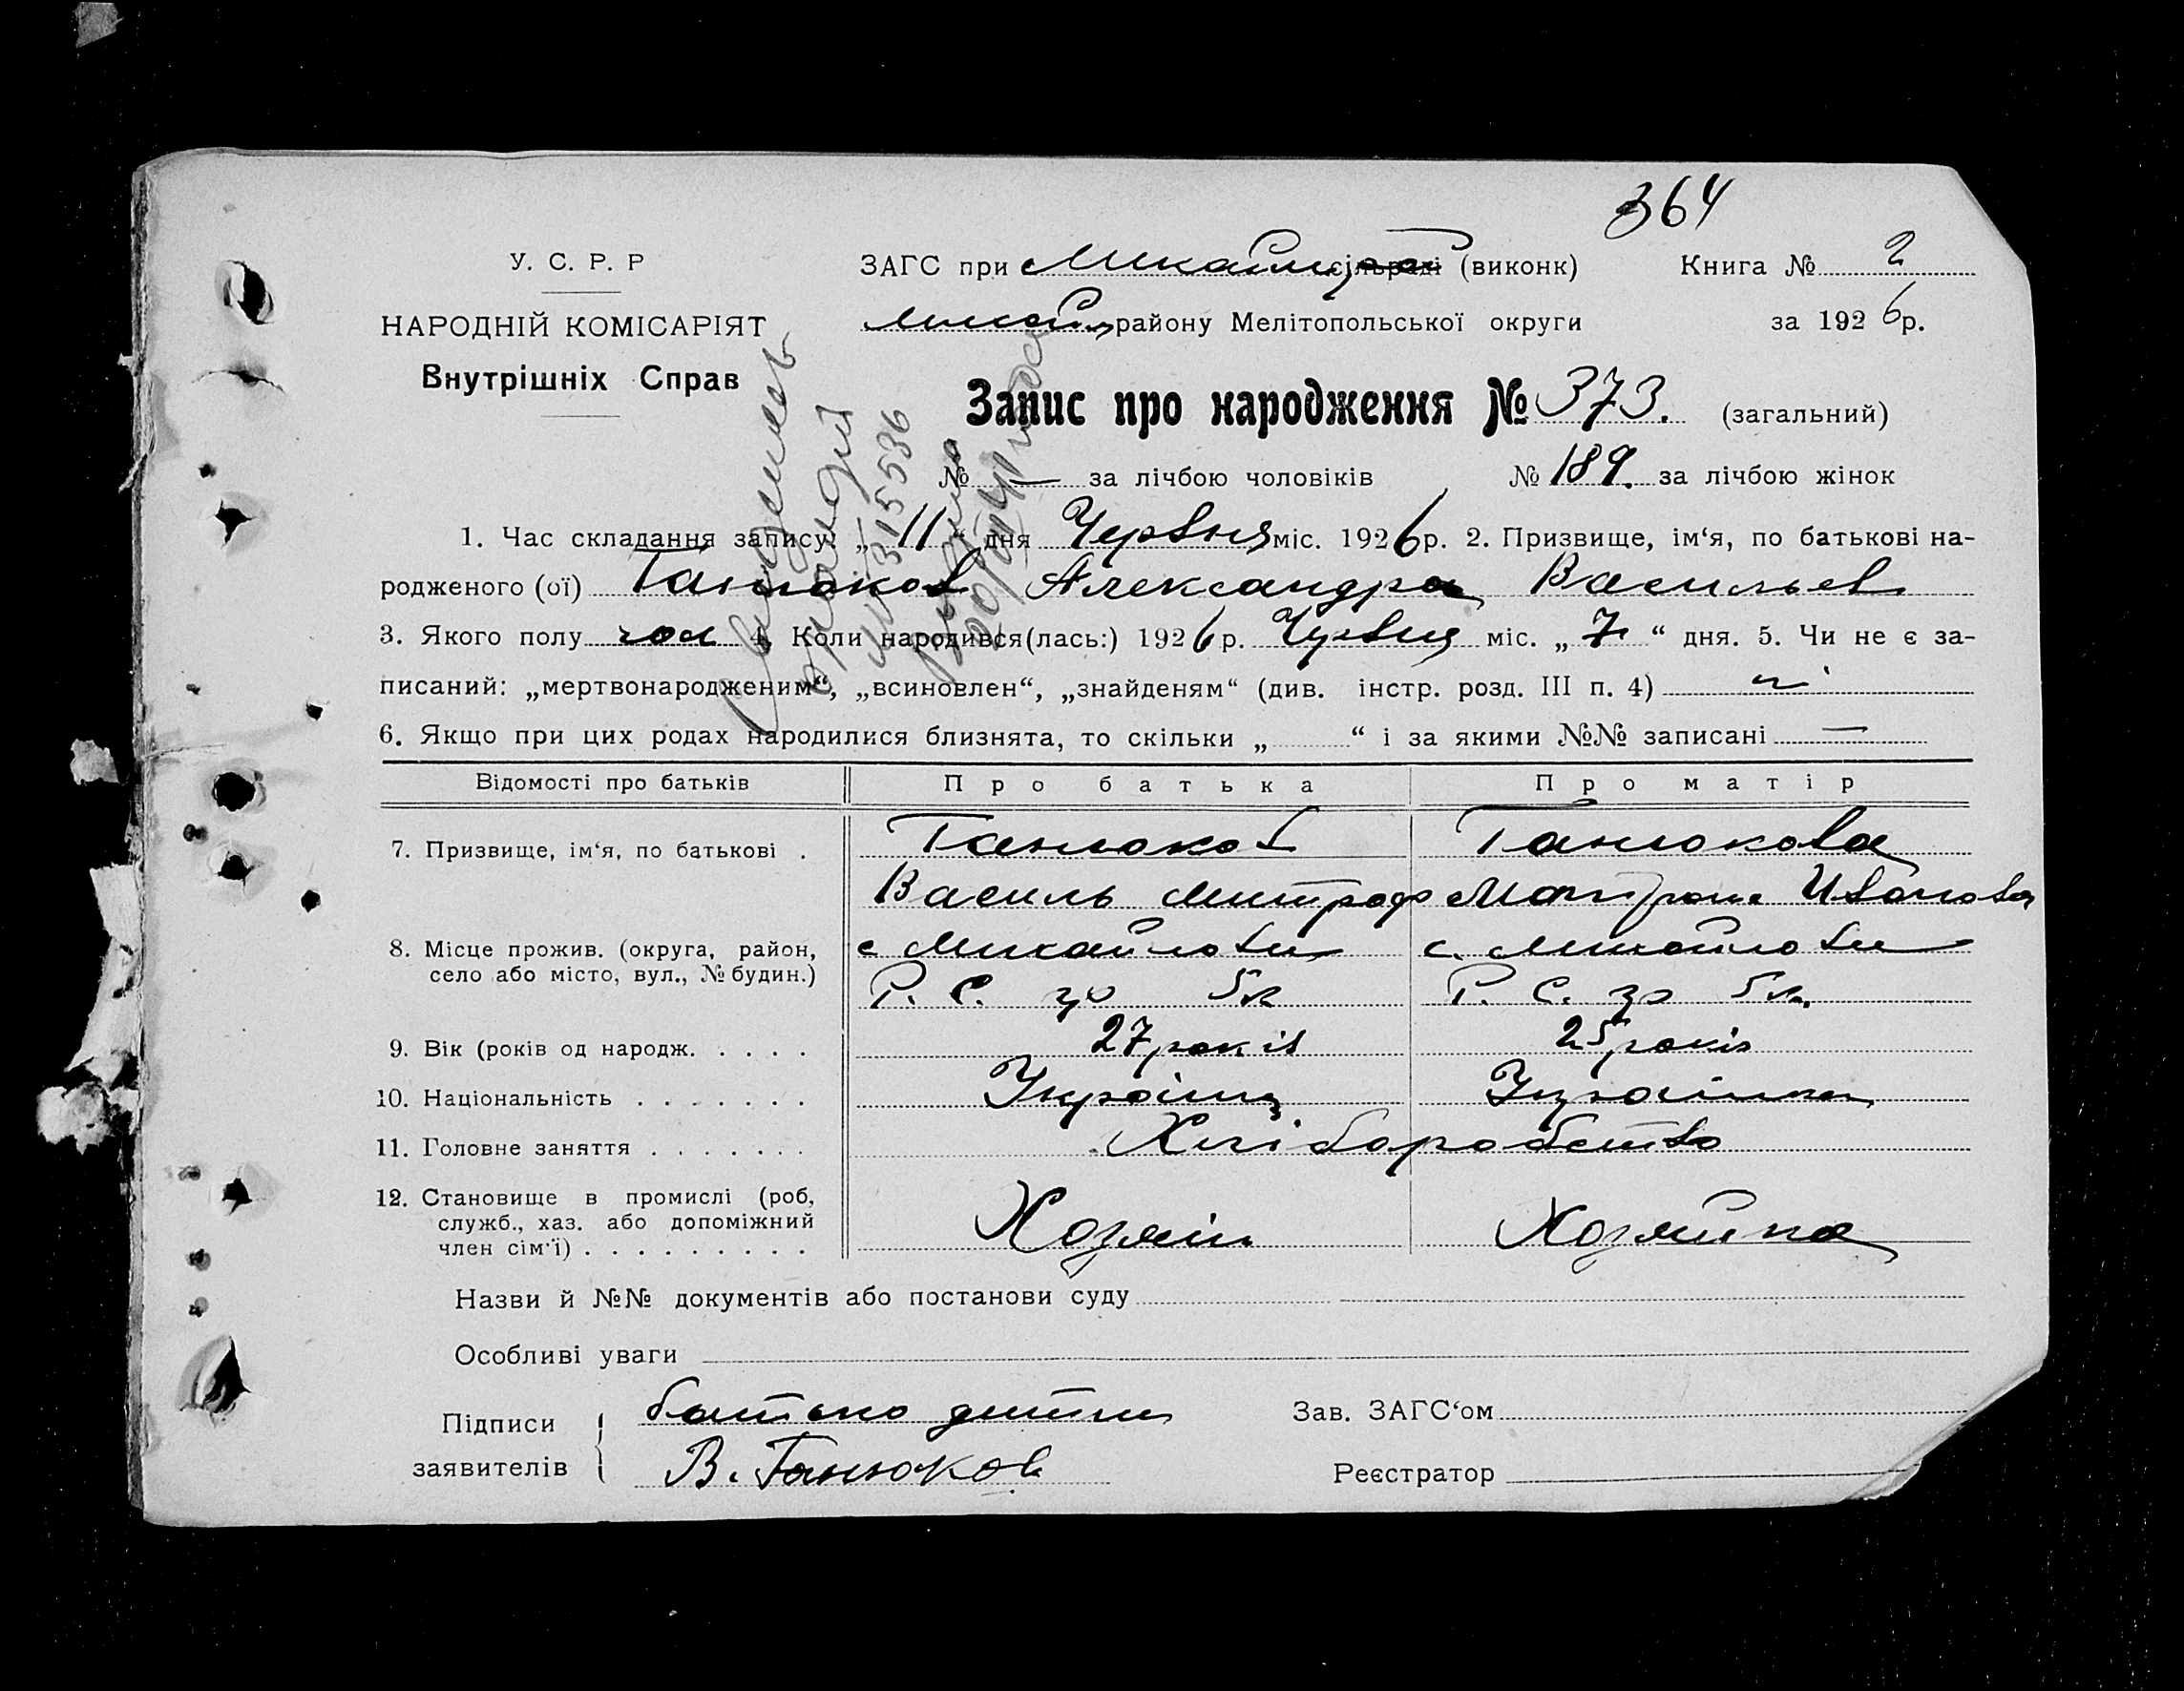 364
У. С. Р. Р
ЗАГС при Михайл, сільраді (виконк)
Книга № 2
НАРОДНІЙ КОМІСАРІЯТ
Михайл, району Мелітопольської округи
за 1926 р.
Внутрішніх Справ
Запис про народження № 373. (загальний)
№ — за лічбою чоловіків
№ 189. за лічбою жінок
1. Час складання запису: „ 11 “ дня Червня міс. 1926 р. 2. Призвище, ім‘я, по батькові на-
родженого (ої) Ганюков Александра Васильев
3. Якого полу чол 4. Коли народився(лась:) 1926 р. Червня міс. „ 7 “ дня. 5. Чи не є за-
писаний: „мертвонародженим“, „всиновлен“, „знайденям“ (див. інстр. розд. III п. 4) ні
6. Якщо при цих родах народилися близнята, то скільки „ “ і за якими №№ записані —
315536
Відомості про батьків
Про батька
Про матір
7. Призвище, ім‘я, по батькові .
Ганюков
Ганюкова
Василь Митроф
Мотрона Иванова
8. Місце прожив. (округа, район,
село або місто, вул., № будин.)
с Михайловки
с. Михайловки
Р. С. 5к
Р. С. 5к.
9. Вік (років од народж. . . . .
27 років
25 років
10. Національність . . . . . . .
Українц
Українка
11. Головне заняття . . . . . . .
Хліборобство
12. Становище в промислі (роб,
служб., хаз. або допоміжний
член сім‘ї) . . . . . . . . .
Хозяін
Хозяйка
Назви й №№ документів або постанови суду
Особливі уваги
Підписи
заявителів
батько дитини
В. Ганюков
Зав. ЗАГС‘ом
Реєстратор